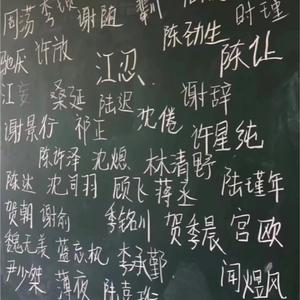 周荡 季 谢随
时瑾
陈劲生
驰厌 许放 陈让
江忍
江妄 桑延 陆迟 谢辞
谢景行 祁正 沈倦 许星纯
陈许泽 沈熄 林清野
陈达 沈司羽 顾飞 蒋丞 陆瑾年
贺朝 谢俞 季铭川 贺季晨 宫欧
魏无羡 蓝忘机 李承鄞 闻煜风
尹少桀 薄夜